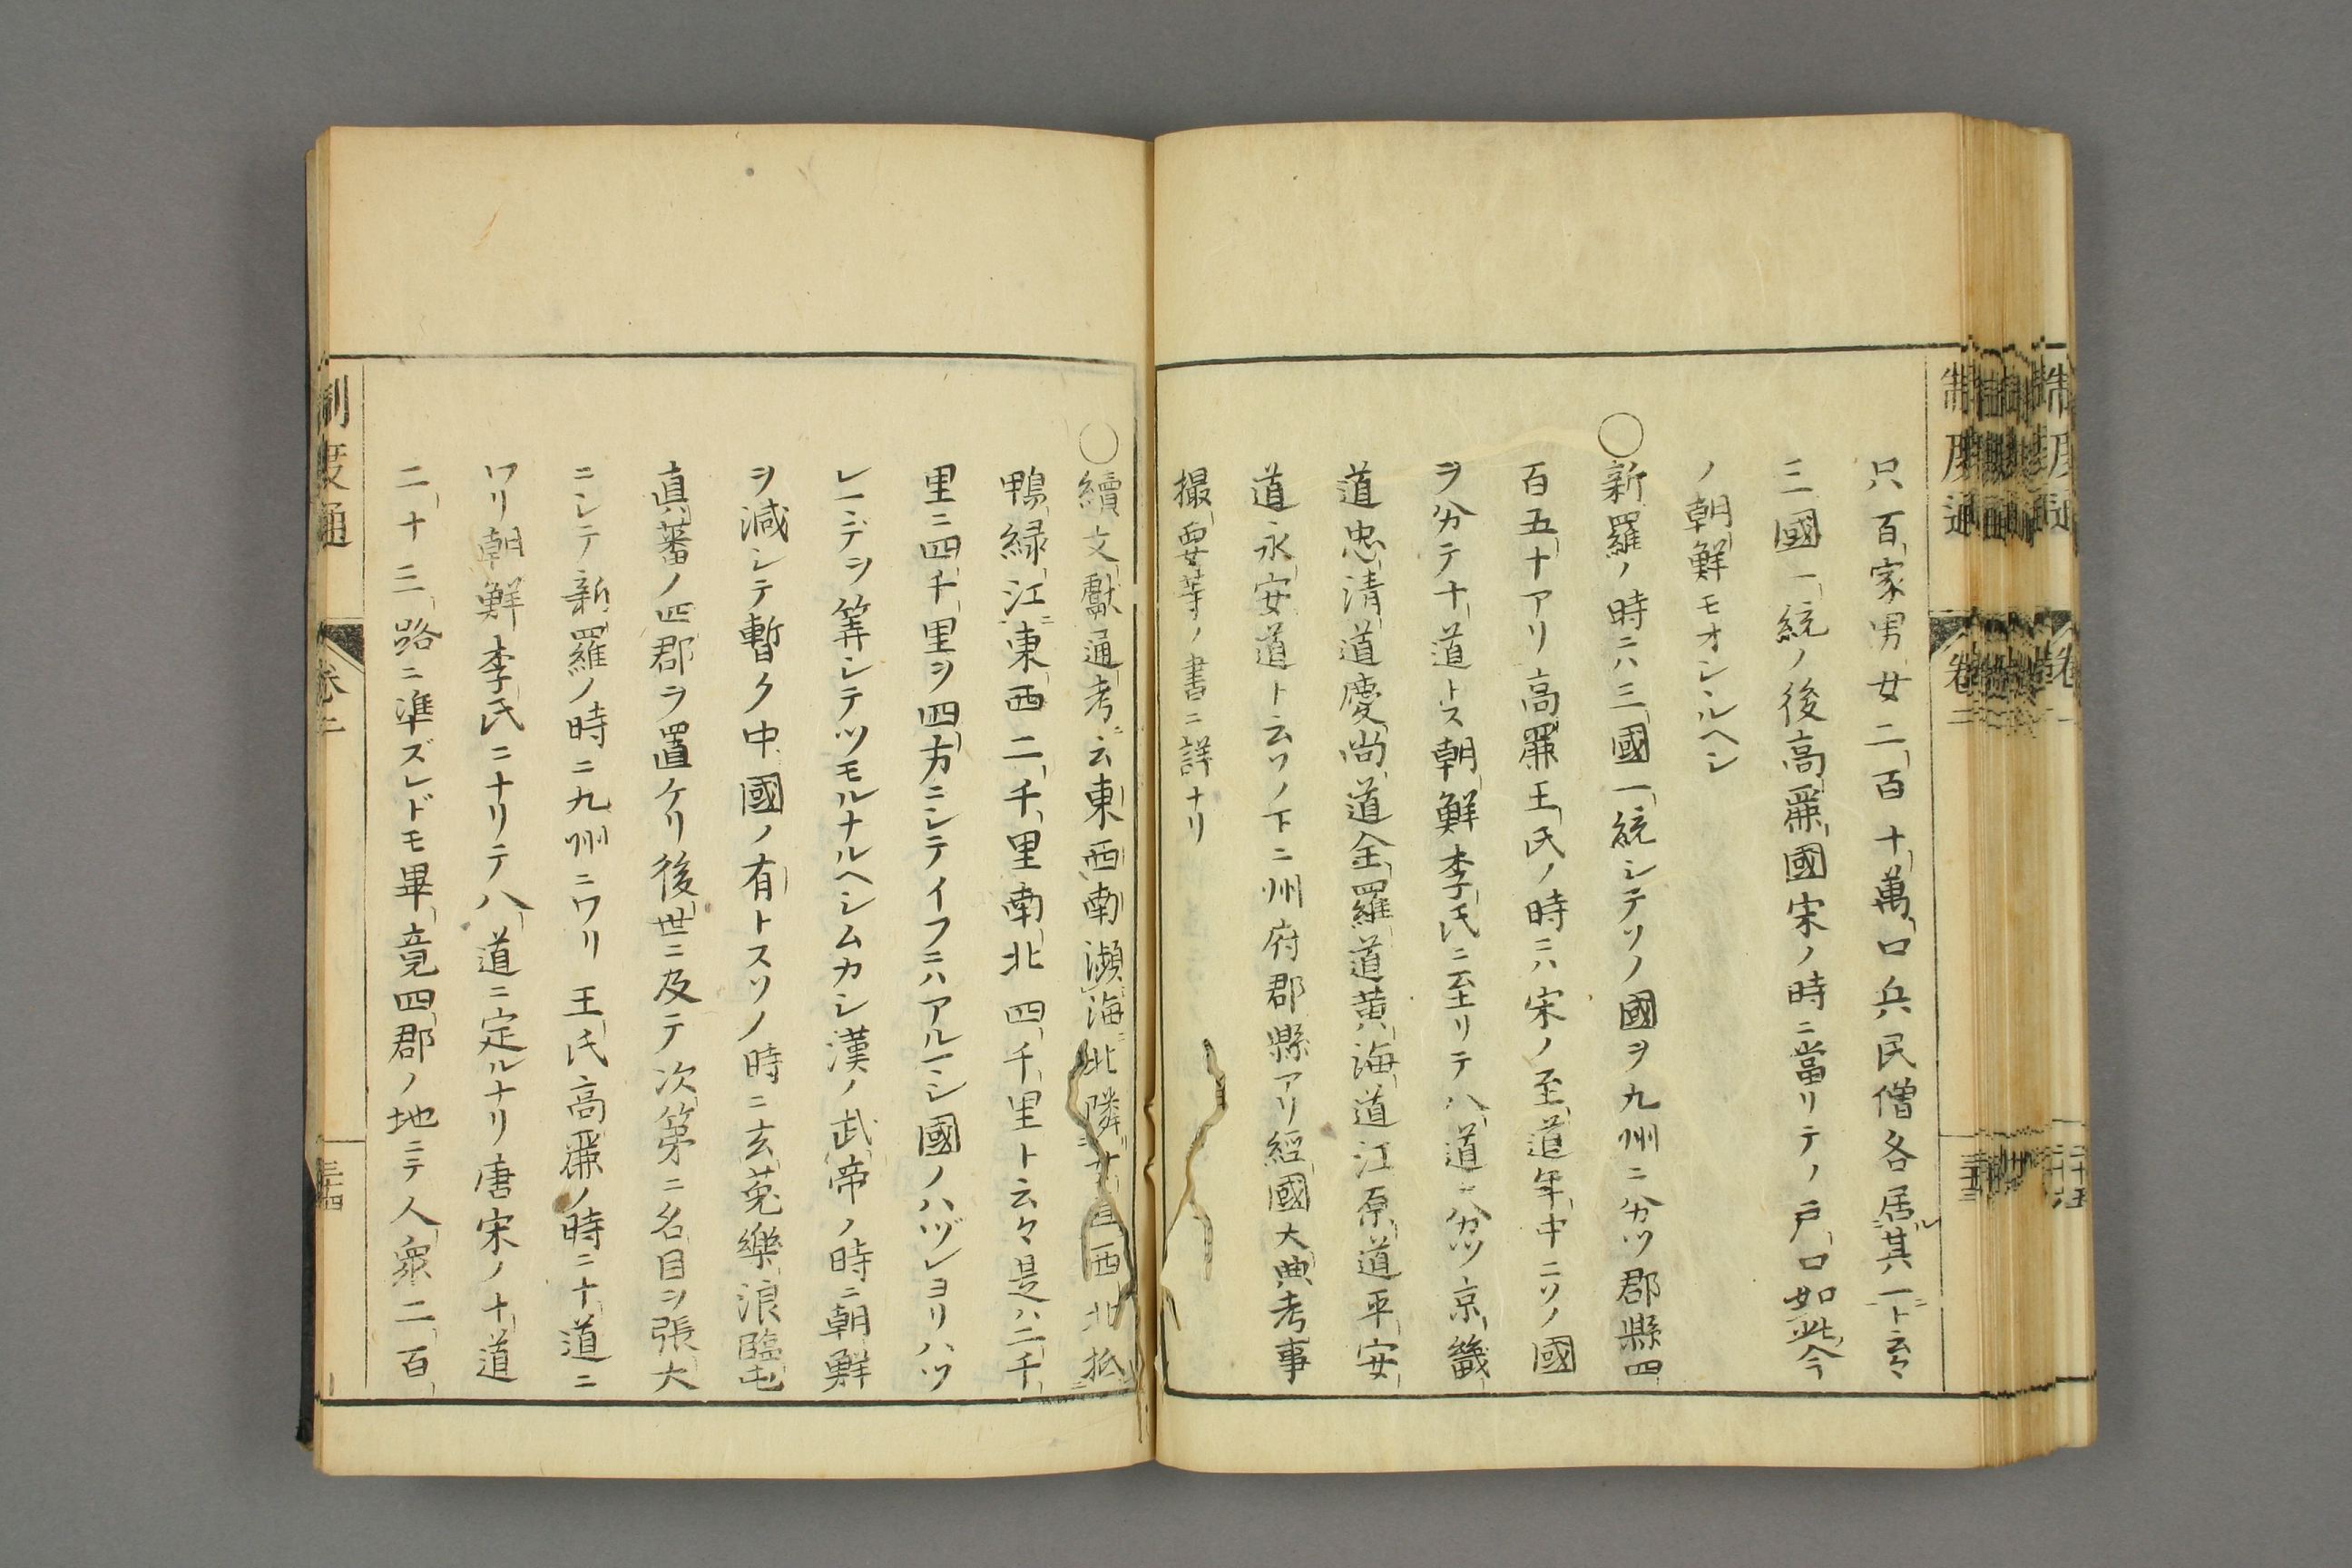 只百家男女二百十萬口兵民僧各居其一ト云々
三國一統ノ後高麗國宋ノ時ニ當リテノ戸口如此今
ノ朝鮮モオシルヘシ
○新羅ノ時ニハ三國一統シテソノ國ヲ九州ニ分ツ郡縣四
百五十アリ高麗王氏ノ時ニハ宋ノ至道年中ニソノ國
ヲ分テ十道トス朝鮮李氏ニ至リテ八道ニ分ツ京畿
道忠清道慶尚道全羅道黄海道江原道平安
道永安道ト云ソノ下ニ州府郡縣アリ經國大典考事
撮要等ノ書ニ詳ナリ
○續文獻通考云東西南瀕海北隣女直西北抵
鴨緑江東西二千里南北四千里ト云々是ハ二千
里ニ四千里ヲ四方ニシテイフニハアルヿシ國ノハヅレヨリハツ
レヿデヲ筭シテツモルナルヘシムカシ漢ノ武帝ノ時ニ朝鮮
ヲ滅シテ暫ク中國ノ有トスソノ時ニ玄菟樂浪臨屯
真蕃ノ四郡ヲ置ケリ後世ニ及テ次第ニ名目ヲ張大
ニシテ新羅ノ時ニ九州ニワリ王氏高麗ノ時ニ十道ニ
ワリ朝鮮李氏ニナリテ八道ニ定ルナリ唐宋ノ十道
二十三路ニ準ズレドモ畢竟四郡ノ地ニテ人衆二百
制度通
卷二
三十四